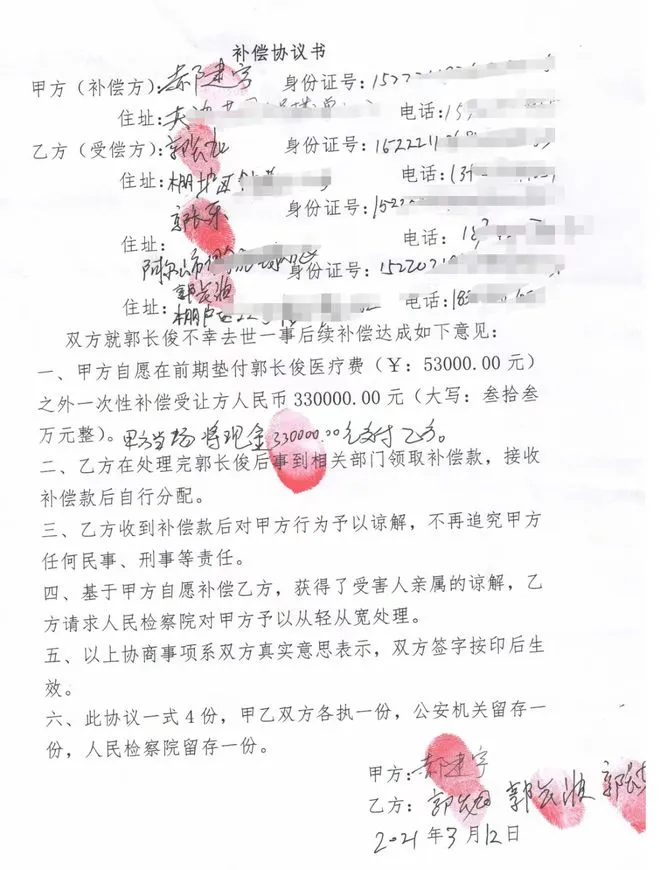 补偿协议书
甲方（补偿方）：郝建宇 身份证号：152221
住址： 电话：15
乙方（受偿方）：郭长 身份证号：152221
住址：棚户区 电话：13
郭长东 身份证号：152
住址： 电话：18
阿尔山市 身份证号：152202
郭长波
住址：棚户区 电话：18
双方就郭长俊不幸去世一事后续补偿达成如下意见：
一、甲方自愿在前期垫付郭长俊医疗费（￥：53000.00 元）
之外一次性补偿受让方人民币 330000.00 元（大写：叁拾叁
万元整）。甲方当场将现金330000.00元交付乙方。
二、乙方在处理完郭长俊后事到相关部门领取补偿款，接收
补偿款后自行分配。
三、乙方收到补偿款后对甲方行为予以谅解，不再追究甲方
任何民事、刑事等责任。
四、基于甲方自愿补偿乙方，获得了受害人亲属的谅解，乙
方请求人民检察院对甲方予以从轻从宽处理。
五、以上协商事项系双方真实意思表示，双方签字按印后生
效。
六、此协议一式 4 份，甲乙双方各执一份，公安机关留存一
份，人民检察院留存一份。
甲方：郝建宇
乙方：郭长 郭长波 郭长
2021 年 3 月 12 日